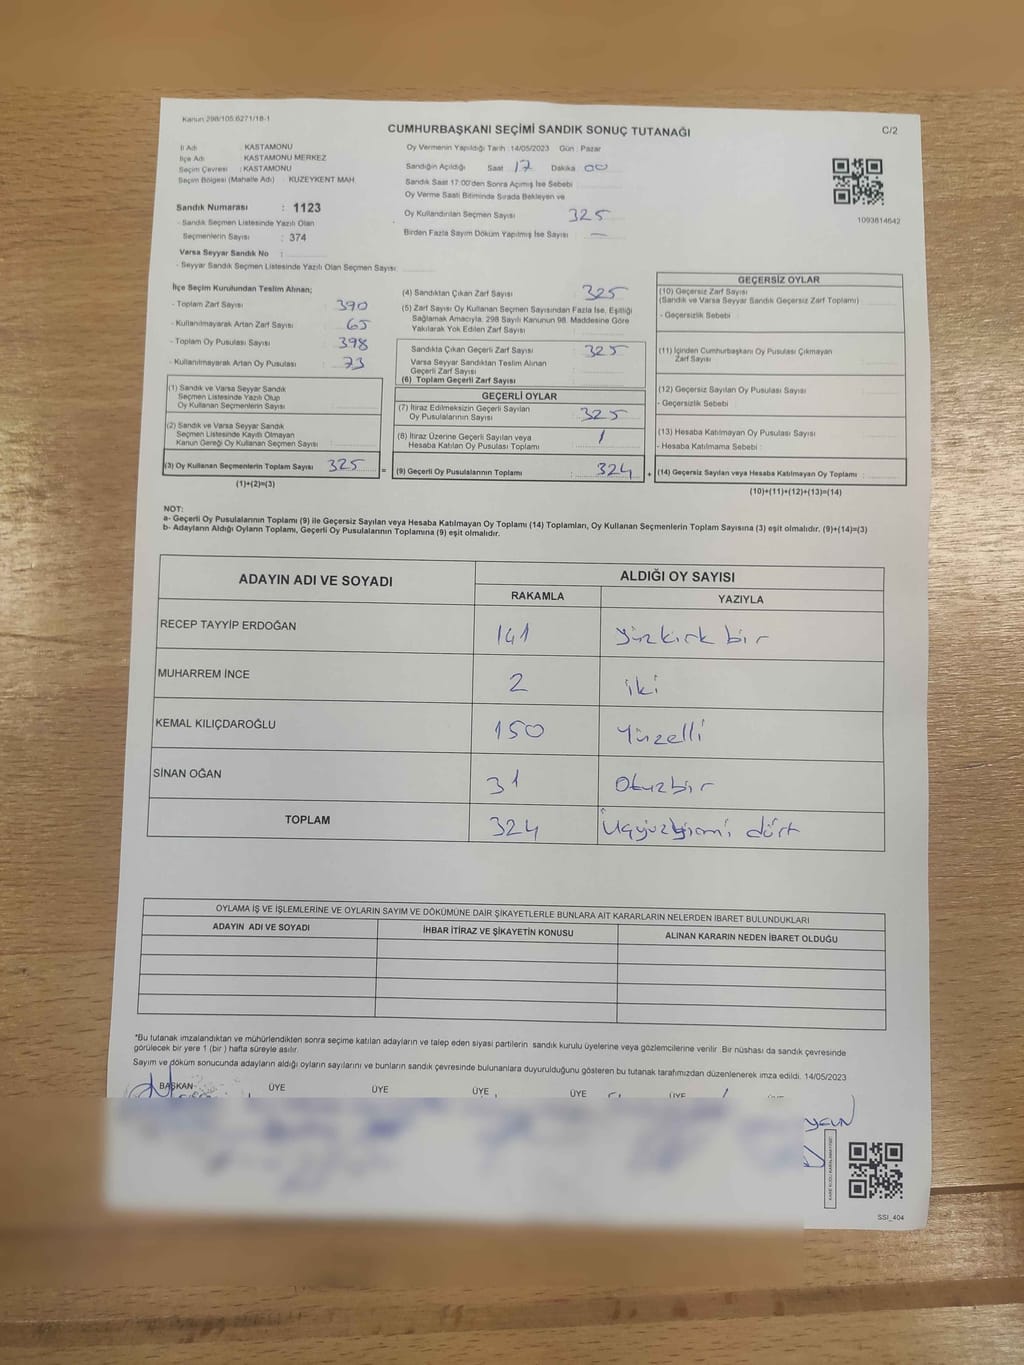 Kanun 298/105:6271/18-1
CUMHURBAŞKANI SEÇİMİ SANDIK SONUÇ TUTANAĞI
C/2
İl Adı : KASTAMONU
İlçe Adı : KASTAMONU MERKEZ
Seçim Çevresi : KASTAMONU
Seçim Bölgesi (Mahalle Adı) : KUZEYKENT MAH.
Sandık Numarası : 1123
- Sandık Seçmen Listesinde Yazılı Olan
Seçmenlerin Sayısı : 374
Varsa Seyyar Sandık No :
- Seyyar Sandık Seçmen Listesinde Yazılı Olan Seçmen Sayısı
Oy Vermenin Yapıldığı Tarih : 14/05/2023 Gün : Pazar
Sandığın Açıldığı Saat 17 Dakika 00
Sandık Saat 17:00'den Sonra Açımış İse Sebebi
Oy Verme Saati Bitiminde Sırada Bekleyen ve
Oy Kullandırılan Seçmen Sayısı 325
Birden Fazla Sayım Döküm Yapılmış İse Sayısı : —
1093614642
İlçe Seçim Kurulundan Teslim Alınan;
- Toplam Zarf Sayısı : 390
- Kullanılmayarak Artan Zarf Sayısı : 65
- Toplam Oy Pusulası Sayısı : 398
- Kullanılmayarak Artan Oy Pusulası : 73
(1) Sandık ve Varsa Seyyar Sandık
Seçmen Listesinde Yazılı Olup
Oy Kullanan Seçmenlerin Sayısı :
(2) Sandık ve Varsa Seyyar Sandık
Seçmen Listesinde Kayıtlı Olmayan
Kanun Gereği Oy Kullanan Seçmen Sayısı :
(3) Oy Kullanan Seçmenlerin Toplam Sayısı : 325
(1)+(2)=(3)
=
(4) Sandıktan Çıkan Zarf Sayısı : 325
(5) Zarf Sayısı Oy Kullanan Seçmen Sayısından Fazla İse, Eşitliği
Sağlamak Amacıyla, 298 Sayılı Kanunun 98. Maddesine Göre
Yakılarak Yok Edilen Zarf Sayısı :
Sandıkta Çıkan Geçerli Zarf Sayısı : 325
Varsa Seyyar Sandıktan Teslim Alınan
Geçerli Zarf Sayısı :
(6) Toplam Geçerli Zarf Sayısı :
GEÇERLİ OYLAR
(7) İtiraz Edilmeksizin Geçerli Sayılan
Oy Pusulalarının Sayısı : 325
(8) İtiraz Üzerine Geçerli Sayılan veya
Hesaba Katılan Oy Pusulası Toplamı : 1
(9) Geçerli Oy Pusulalarının Toplamı : 324
+
GEÇERSİZ OYLAR
(10) Geçersiz Zarf Sayısı
(Sandık ve Varsa Seyyar Sandık Geçersiz Zarf Toplamı) :
- Geçersizlik Sebebi :
(11) İçinden Cumhurbaşkanı Oy Pusulası Çıkmayan
Zarf Sayısı :
(12) Geçersiz Sayılan Oy Pusulası Sayısı :
- Geçersizlik Sebebi :
(13) Hesaba Katılmayan Oy Pusulası Sayısı :
- Hesaba Katılmama Sebebi :
(14) Geçersiz Sayılan veya Hesaba Katılmayan Oy Toplamı :
(10)+(11)+(12)+(13)=(14)
NOT:
a- Geçerli Oy Pusulalarının Toplamı (9) ile Geçersiz Sayılan veya Hesaba Katılmayan Oy Toplamı (14) Toplamları, Oy Kullanan Seçmenlerin Toplam Sayısına (3) eşit olmalıdır. (9)+(14)=(3)
b- Adayların Aldığı Oyların Toplamı, Geçerli Oy Pusulalarının Toplamına (9) eşit olmalıdır.
ADAYIN ADI VE SOYADI
ALDIĞI OY SAYISI
RAKAMLA YAZIYLA
RECEP TAYYİP ERDOĞAN 141 Yüzkırk bir
MUHARREM İNCE 2 iki
KEMAL KILIÇDAROĞLU 150 Yüzelli
SİNAN OĞAN 31 Otuzbir
TOPLAM 324 Üçyüzyirmi dört
OYLAMA İŞ VE İŞLEMLERİNE VE OYLARIN SAYIM VE DÖKÜMÜNE DAİR ŞİKAYETLERLE BUNLARA AİT KARARLARIN NELERDEN İBARET BULUNDUKLARI
ADAYIN ADI VE SOYADI İHBAR İTİRAZ VE ŞİKAYETİN KONUSU ALINAN KARARIN NEDEN İBARET OLDUĞU
*Bu tutanak imzalandıktan ve mühürlendikten sonra seçime katılan adayların ve talep eden siyasi partilerin sandık kurulu üyelerine veya gözlemcilerine verilir. Bir nüshası da sandık çevresinde
görülecek bir yere 1 (bir ) hafta süreyle asılır.
Sayım ve döküm sonucunda adayların aldığı oyların sayılarını ve bunların sandık çevresinde bulunanlara duyurulduğunu gösteren bu tutanak tarafımızdan düzenlenerek imza edildi. 14/05/2023
BAŞKAN ÜYE ÜYE ÜYE ÜYE ÜYE
SSI_404